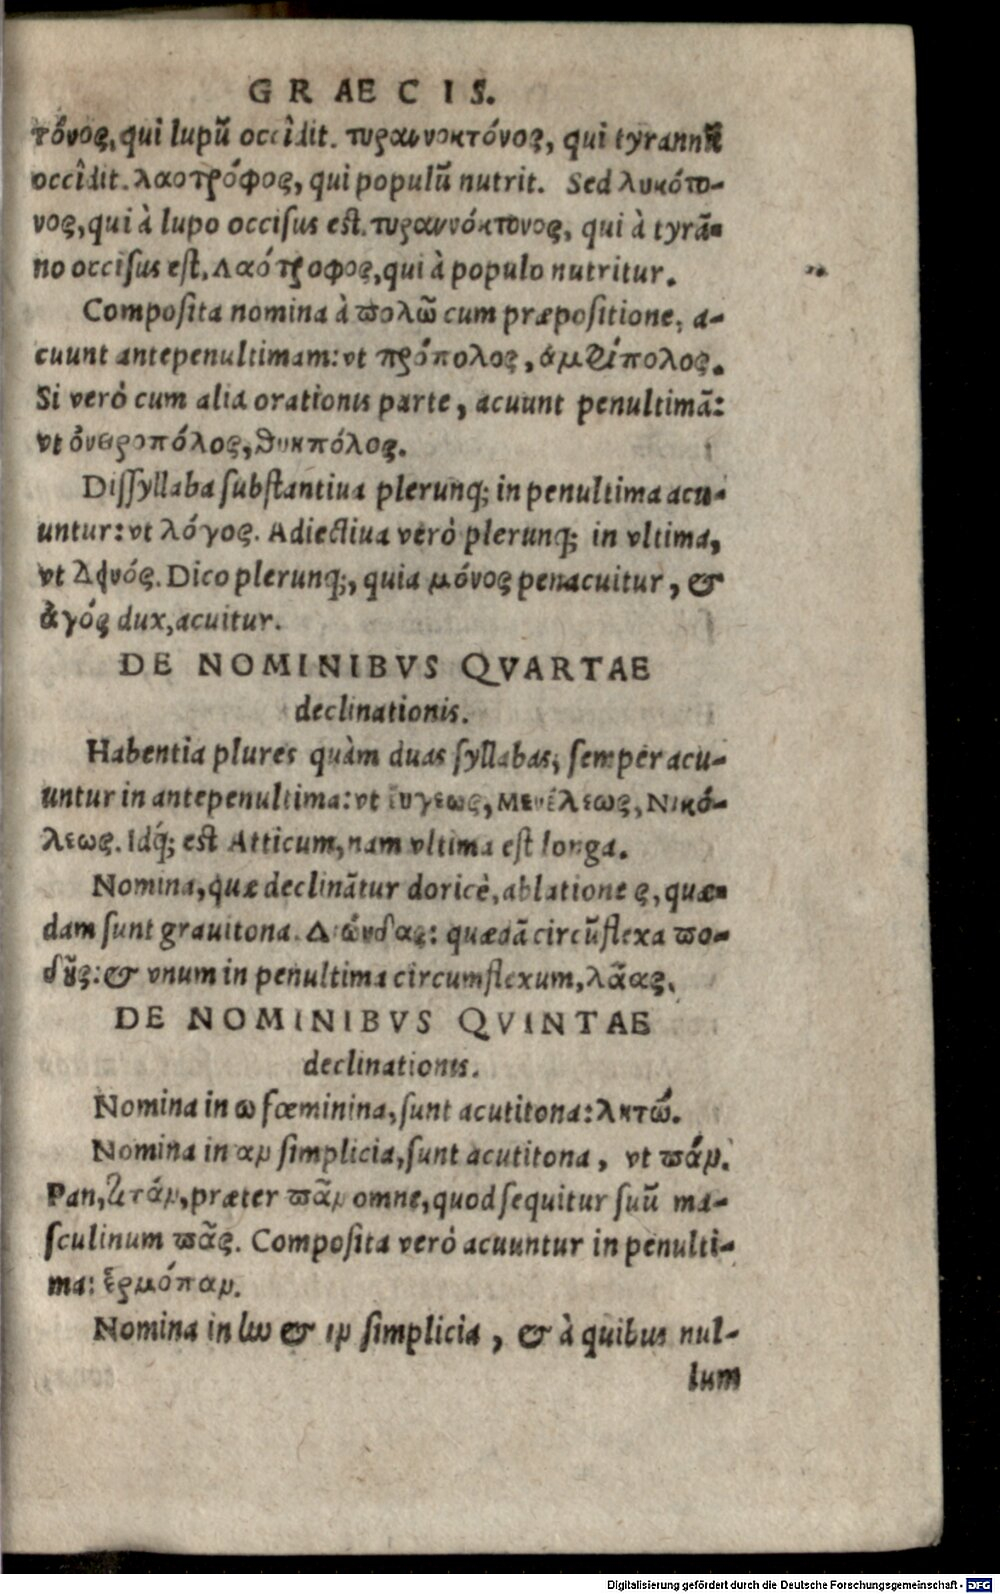 GRAECIS.
τόνος, qui lupũ occîdit. τυραννοκτόνος, qui tyrannũ
occîdit. λαοτρόφος, qui populũ nutrit. Sed λυκότο-
νος, qui à lupo occisus est. τυραννόκτονος, qui à tyrã-
no occisus est, λαότροφος, qui à populo nutritur.
Composita nomina à πολῶ cum præpositione, a-
cuunt antepenultimam: vt πρόπολος, ἀμφίπολος.
Si verò cum alia orationis parte, acuunt penultimã:
vt ὀνειροπόλος, θυηπόλος.
Dissyllaba substantiua plerunq; in penultima acu-
untur: vt λόγος. Adiectiua verò plerunq; in vltima,
vt Dico plerunq;, quia μόνος penacuitur, &
ἀγός dux, acuitur.
DE NOMINIBVS QVARTAE
declinationis.
Habentia plures quàm duas syllabas, semper acu-
untur in antepenultima: vt εὔγεως, Μενέλεως, Νικό-
λεως. Idq; est Atticum, nam vltima est longa.
Nomina, quæ declinãtur doricè, ablatione ς, quæ-
dam sunt grauitona. quædã circũflexa πο-
δῆς: & vnum in penultima circumflexum, λᾶας.
DE NOMINIBVS QVINTAE
declinationis.
Nomina in ω fœminina, sunt acutitona: λητώ.
Nomina in αν simplicia, sunt acutitona, vt πάν.
Pan, τιτάν, præter πᾶν omne, quod sequitur suũ ma-
sculinum πᾶς. Composita verò acuuntur in penulti-
ma: ἑρμόπαν.
Nomina in ην & ιν simplicia, & à quibus nul-
lum
Digitalisierung gefördert durch die Deutsche Forschungsgemeinschaft - DFG